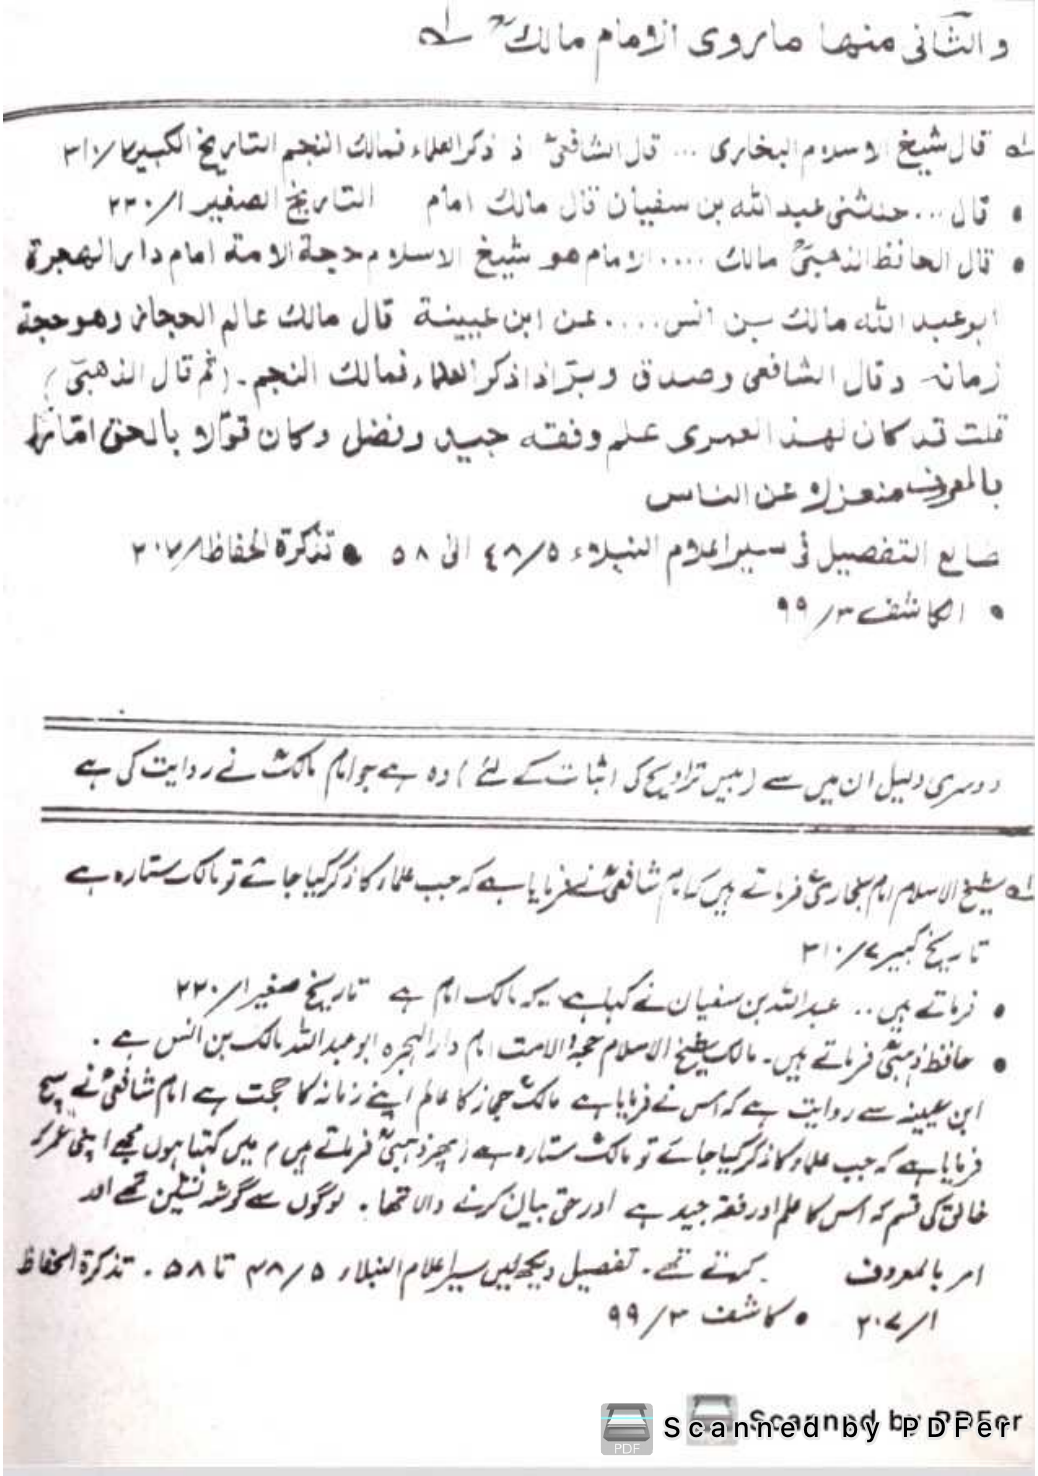 والثانی منها ماروی الامام مالکؒ لہ
لہ قال شیخ الاسلام البخاری ... قال الشافعیؒ اذ ذکر العلماء فمالک النجم التاریخ الکبیر ۷/۳۱۰
• قال ... حدثنی عبد اللہ بن سفیان قال مالک امام التاریخ الصغیر ۱/۲۳۰
• قال الحافظ الذهبیؒ مالک .... الامام هو شیخ الاسلام حجة الامة امام دار الهجرة
ابو عبد اللہ مالک بن انس .... عن ابن عیینة قال مالک عالم الحجاز وهو حجة
زمانہ وقال الشافعی وصدق وبرّ اذا ذکر العلماء فمالک النجم ۔ (ثم قال الذهبیؒ)
قلت قد کان لهذا العمری علم وفقه جید وفضل وکان قوّالا بالحق امّارًا
بالمعروف منعزلا عن الناس
التفصیل فی سیر اعلام النبلاء ۵/٤۸ الی ۵۸ • تذکرة الحفاظ ۱/۲۰۷
• الکاشف ۳/۹۹
دوسری دلیل ان میں سے (بیس تراویح کی اثبات کے لئے) وہ ہے جو امام مالکؒ نے روایت کی ہے
لہ شیخ الاسلام امام بخاریؒ فرماتے ہیں کہ امام شافعیؒ نے فرمایا ہے کہ جب علماء کا ذکر کیا جائے تو مالک ستارہ ہے
تاریخ کبیر ۷/۳۱۰
• فرماتے ہیں .. عبد اللہ بن سفیان نے کہا ہے کہ مالک امام ہے تاریخ صغیر ۱/۲۳۰
• حافظ ذہبیؒ فرماتے ہیں۔ مالک شیخ الاسلام حجۃ الامت امام دار الہجرہ ابو عبد اللہ مالک بن انس ہے ۔
ابن عیینہ سے روایت ہے کہ اس نے فرمایا ہے مالکؒ حجاز کا عالم اپنے زمانہ کا حجت ہے امام شافعیؒ نے سچ
فرمایا ہے کہ جب علماء کا ذکر کیا جائے تو مالکؒ ستارہ ہے (پھر ذہبیؒ فرماتے ہیں) میں کہتا ہوں مجھے اپنی عمر کے
خالق کی قسم کہ اس کا علم اور فقہ جید ہے اور حق بیان کرنے والا تھا ۔ لوگوں سے گوشہ نشین تھے اور
امر بالمعروف کرتے تھے ۔ تفصیل دیکھ لیں سیر اعلام النبلاء ۵/۴۸ تا ۵۸ ۔ تذکرة الحفاظ
۱/۲۰۷ • کاشف ۳/۹۹
Scanned by PDFer
Scanned by PDFer
PDF